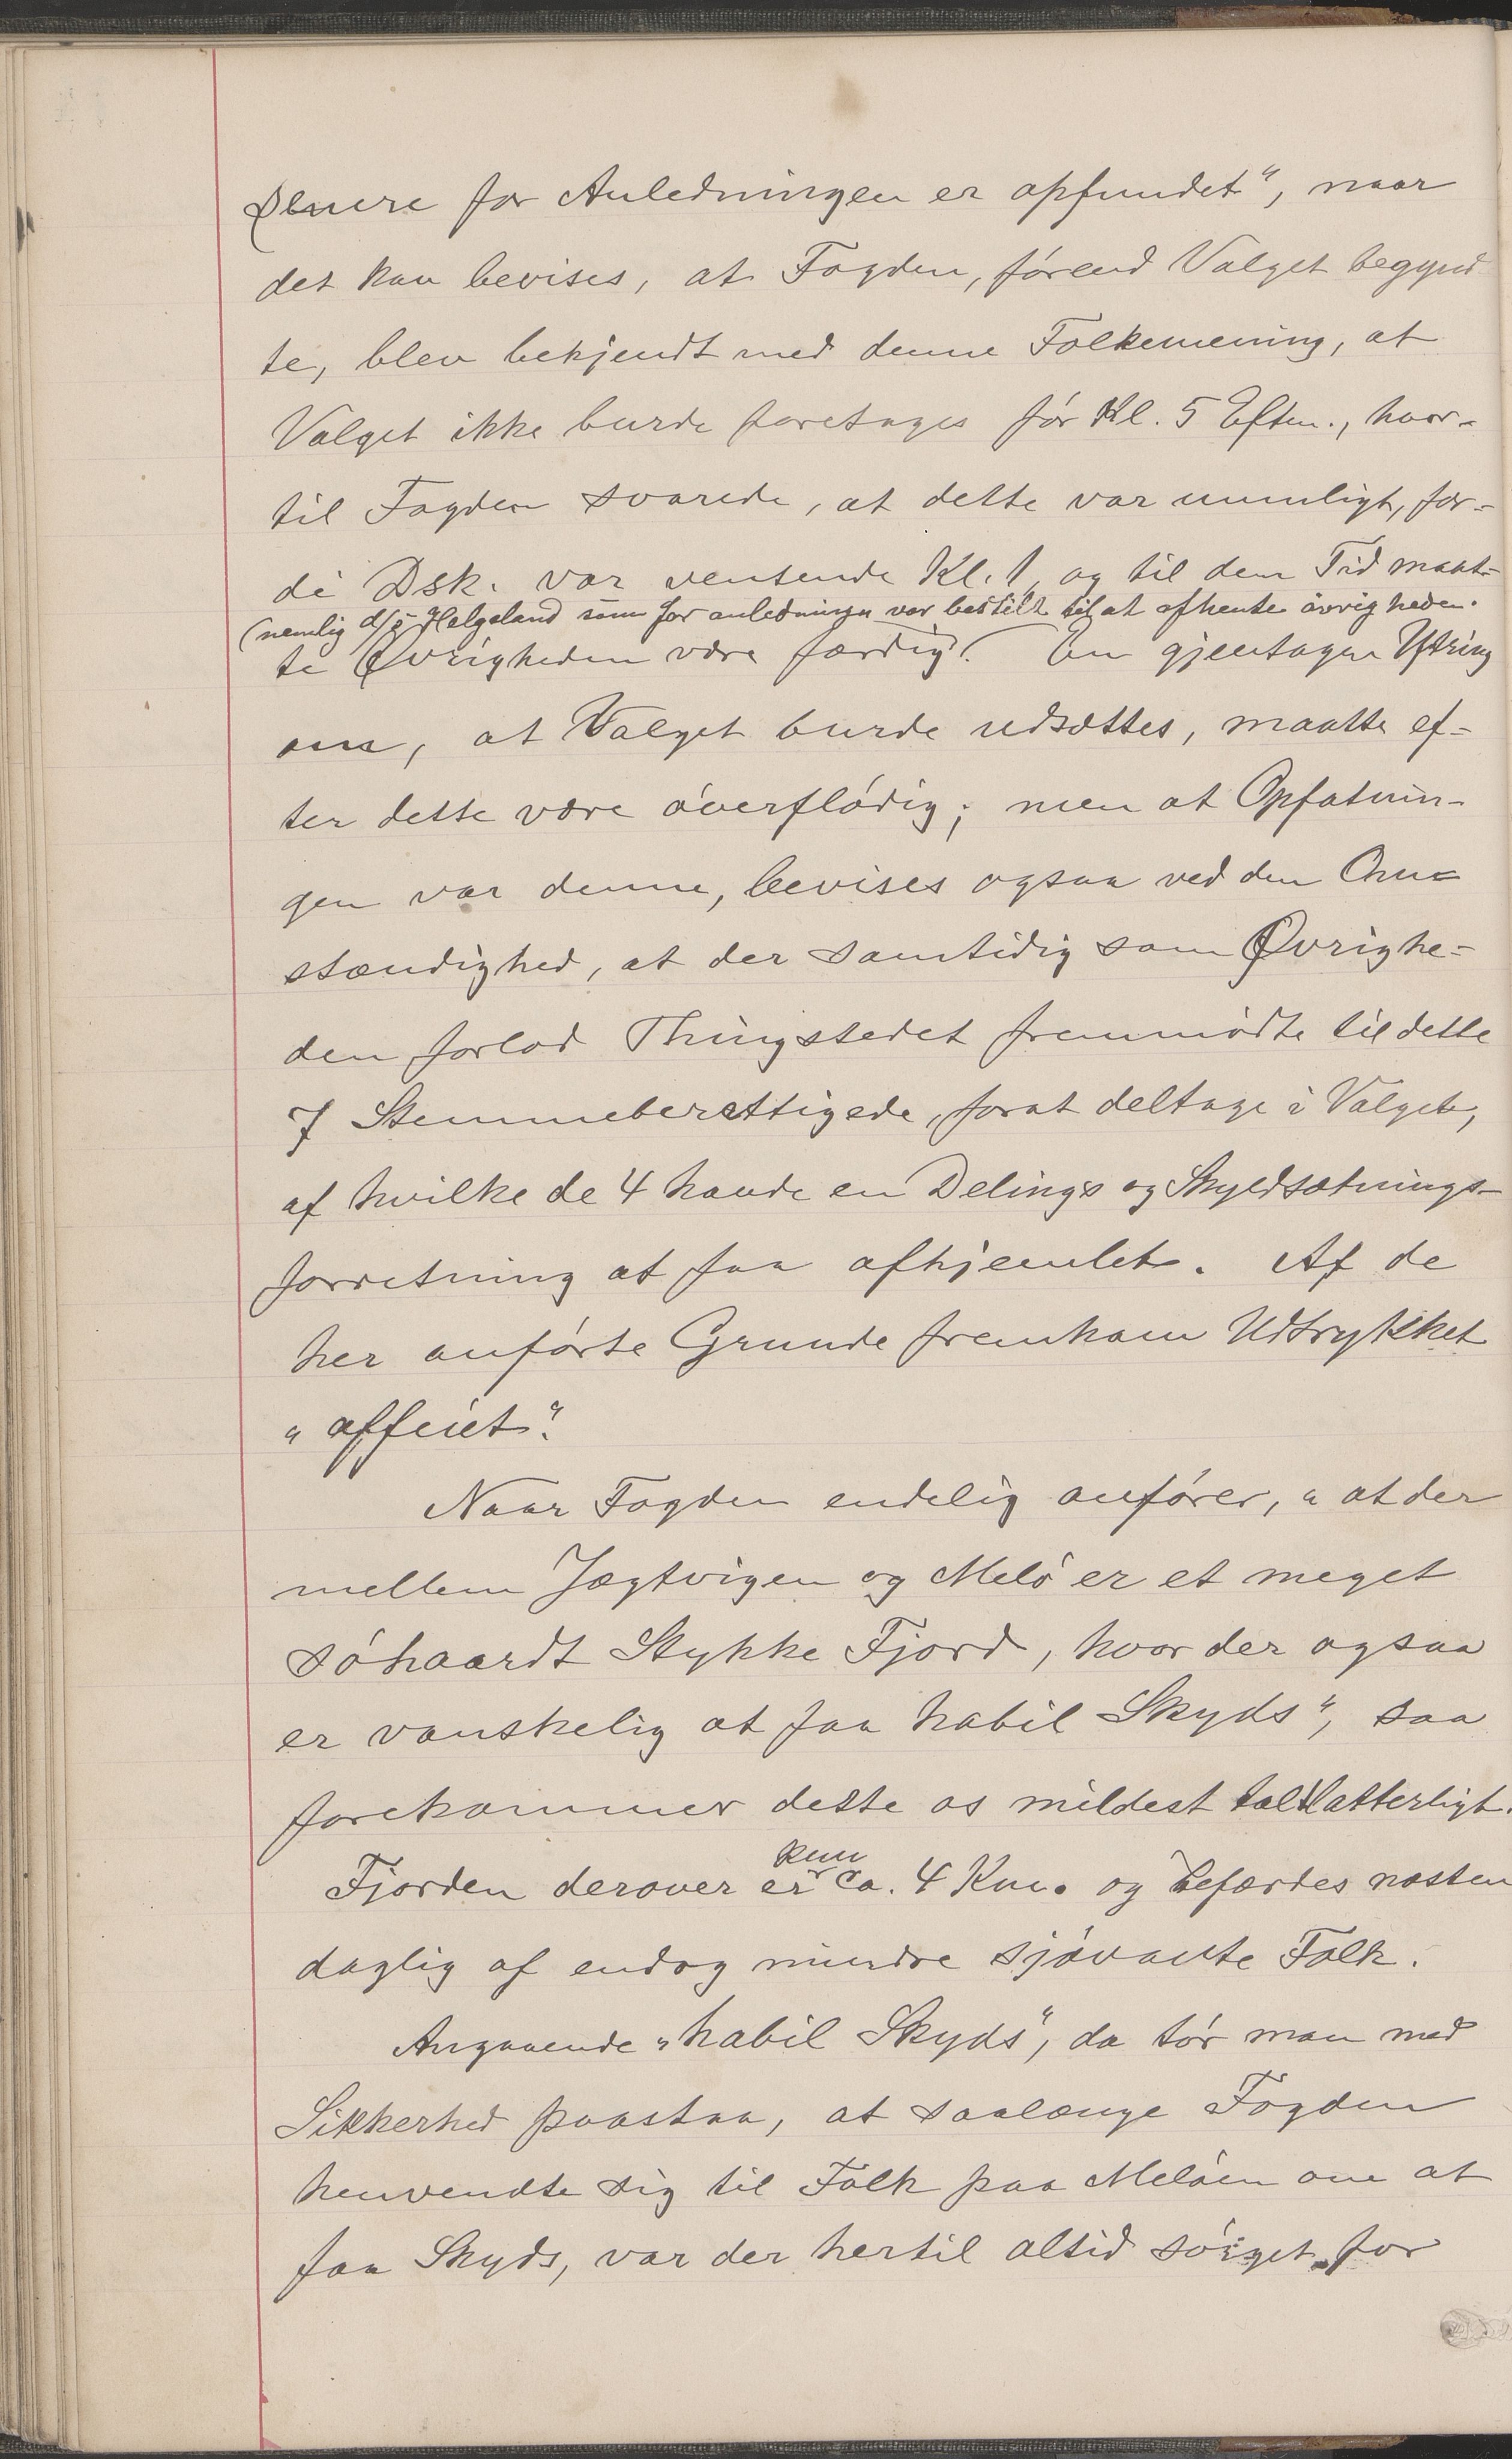 senere for Anledningen er opfundet", naar
det kan bevises, at Fogden, förend Valget begynd
te, blev bekjendt med denne Folkemening, at
Valget ikke burde foretages för Kl. 5 Eftm., hvor-
til Fogden svarede, at dette var umuligt, for-
di Dsk. var ventende Kl. 1, og til den Tid maat-
(nemlig d/s Helgeland som for anledningen var bestilt til at afhente övrigheden.
te Øvrigheden være færdig). En gjentagen Yttring
om, at Valget burde udsættes, maatte ef-
ter dette være överflödig; men at Opfatnin-
gen var denne, bevises ogsaa ved den Om-
stændighed, at der samtidig som Øvrighe-
den forlod Thingstedet fremmödte til dette
7 Stemmeberettigede, forat deltage i Valget,
af hvilke de 4 havde en Delings og Skyldsætnings-
forretning at faa afhjemlet. Af de
her anförte Grunde fremkom Udtrykket
"affeiet".
Naar Fogden endelig anförer, "at der
mellem Jægtvigen og Melö er et meget
söhaardt Stykke Fjord, hvor der ogsaa
er vanskelig at faa habil Skyds", saa
forekommer dette os mildest talt latterligt.
kun
Fjorden derover er ca. 4 Km. og befærdes næsten
daglig af endog mindre sjövante Folk.
Angaaende "habil Skyds", da tör man med
Sikkerhed paastaa, at saalænge Fogden
henvendte sig til Folk paa Melöen om at
faa Skyds, var der hertil altid sörget for